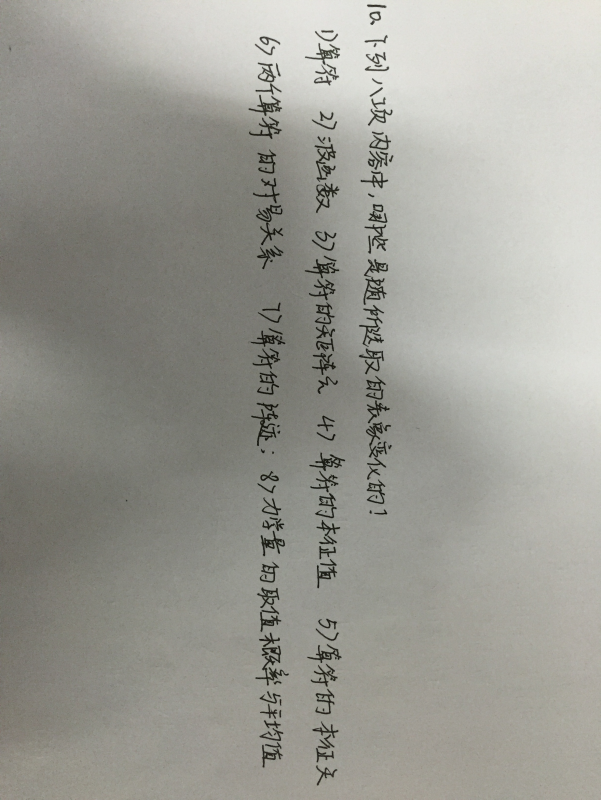 10. 下列八项内容中,哪些是随所选取的表象变化的!
1)算符 2)波函数 3)算符的矩阵元 4)算符的本征值 5)算符的本征矢
6)两个算符的对易关系 7)算符的阵迹;8)力学量的取值概率与平均值